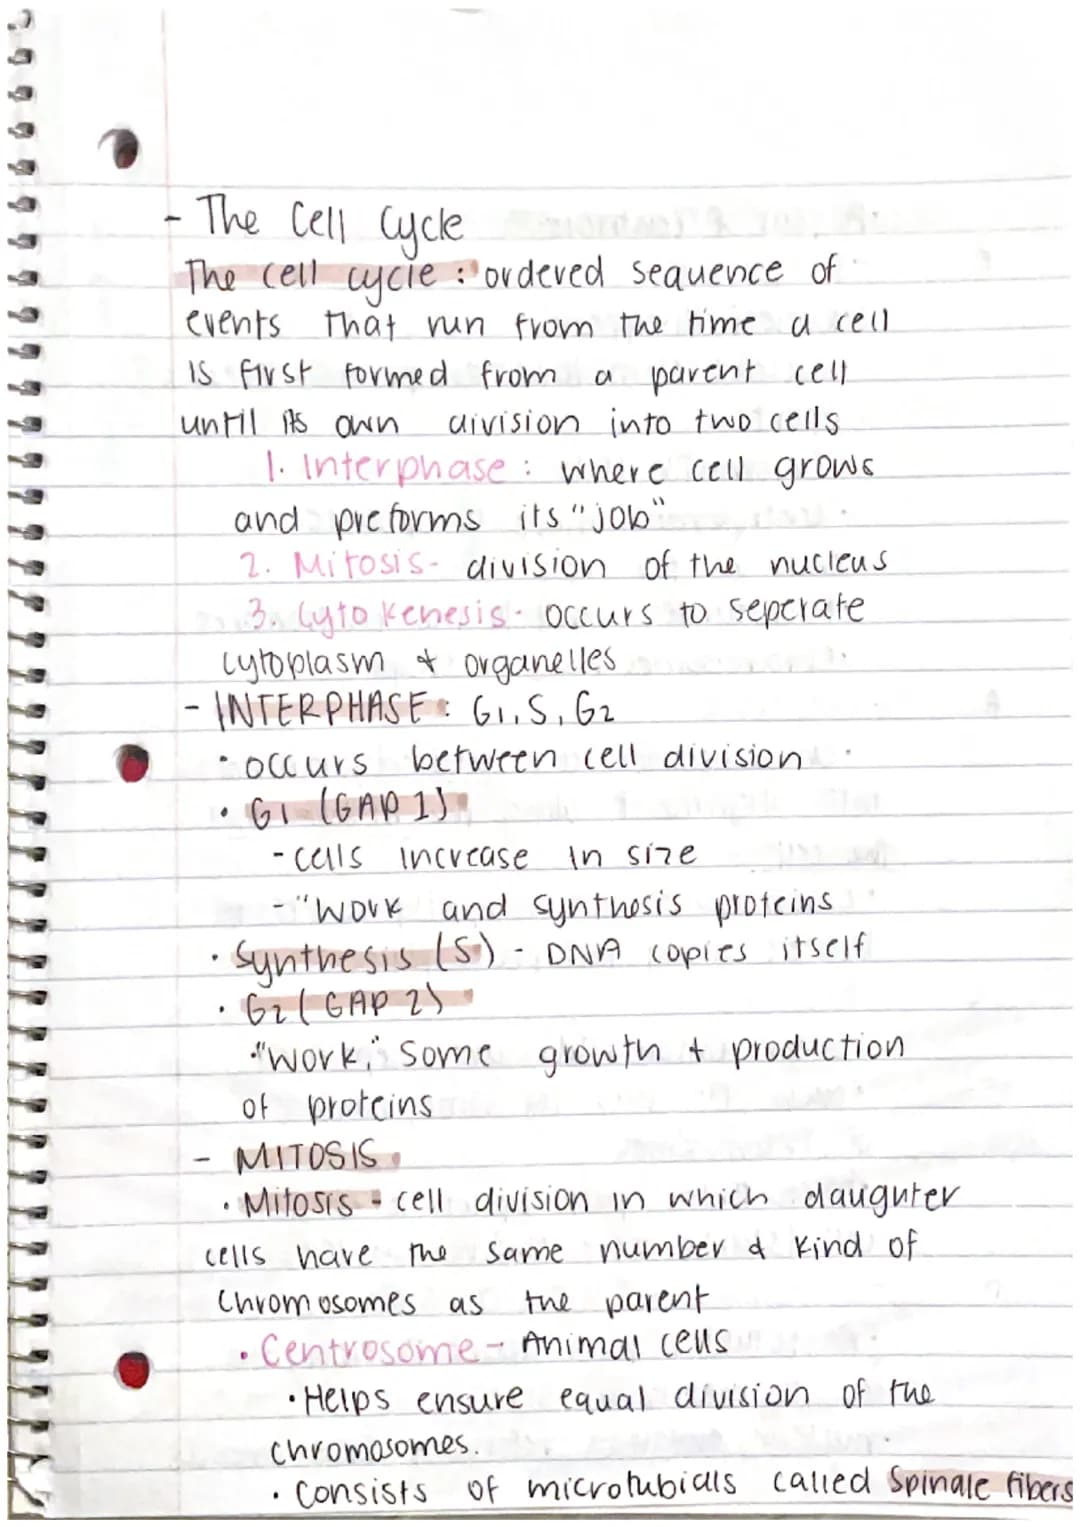 - The Cell Cycle
The cell cycle : ordered sequence of
events that run from the time a cell
is first formed from a parent cell
until its own division into two cells
1. Interphase : where cell grows
and preforms its "job"
2. Mitosis - division of the nucleus
3. Cyto kenesis - occurs to seperate
cytoplasm & organelles
- INTERPHASE : G1, S, G2
• occurs between cell division
• G1 (GAP 1)
- cells increase in size
- "work and synthesis proteins
• Synthesis (S) - DNA copies itself
• G2 (GAP 2)
• "work," some growth + production
of proteins
- MITOSIS
• Mitosis - cell division in which daughter
cells have the same number & kind of
chromosomes as the parent
• Centrosome - Animal cells
• Helps ensure equal division of the
chromosomes.
• Consists of microtubials called Spinale fibers